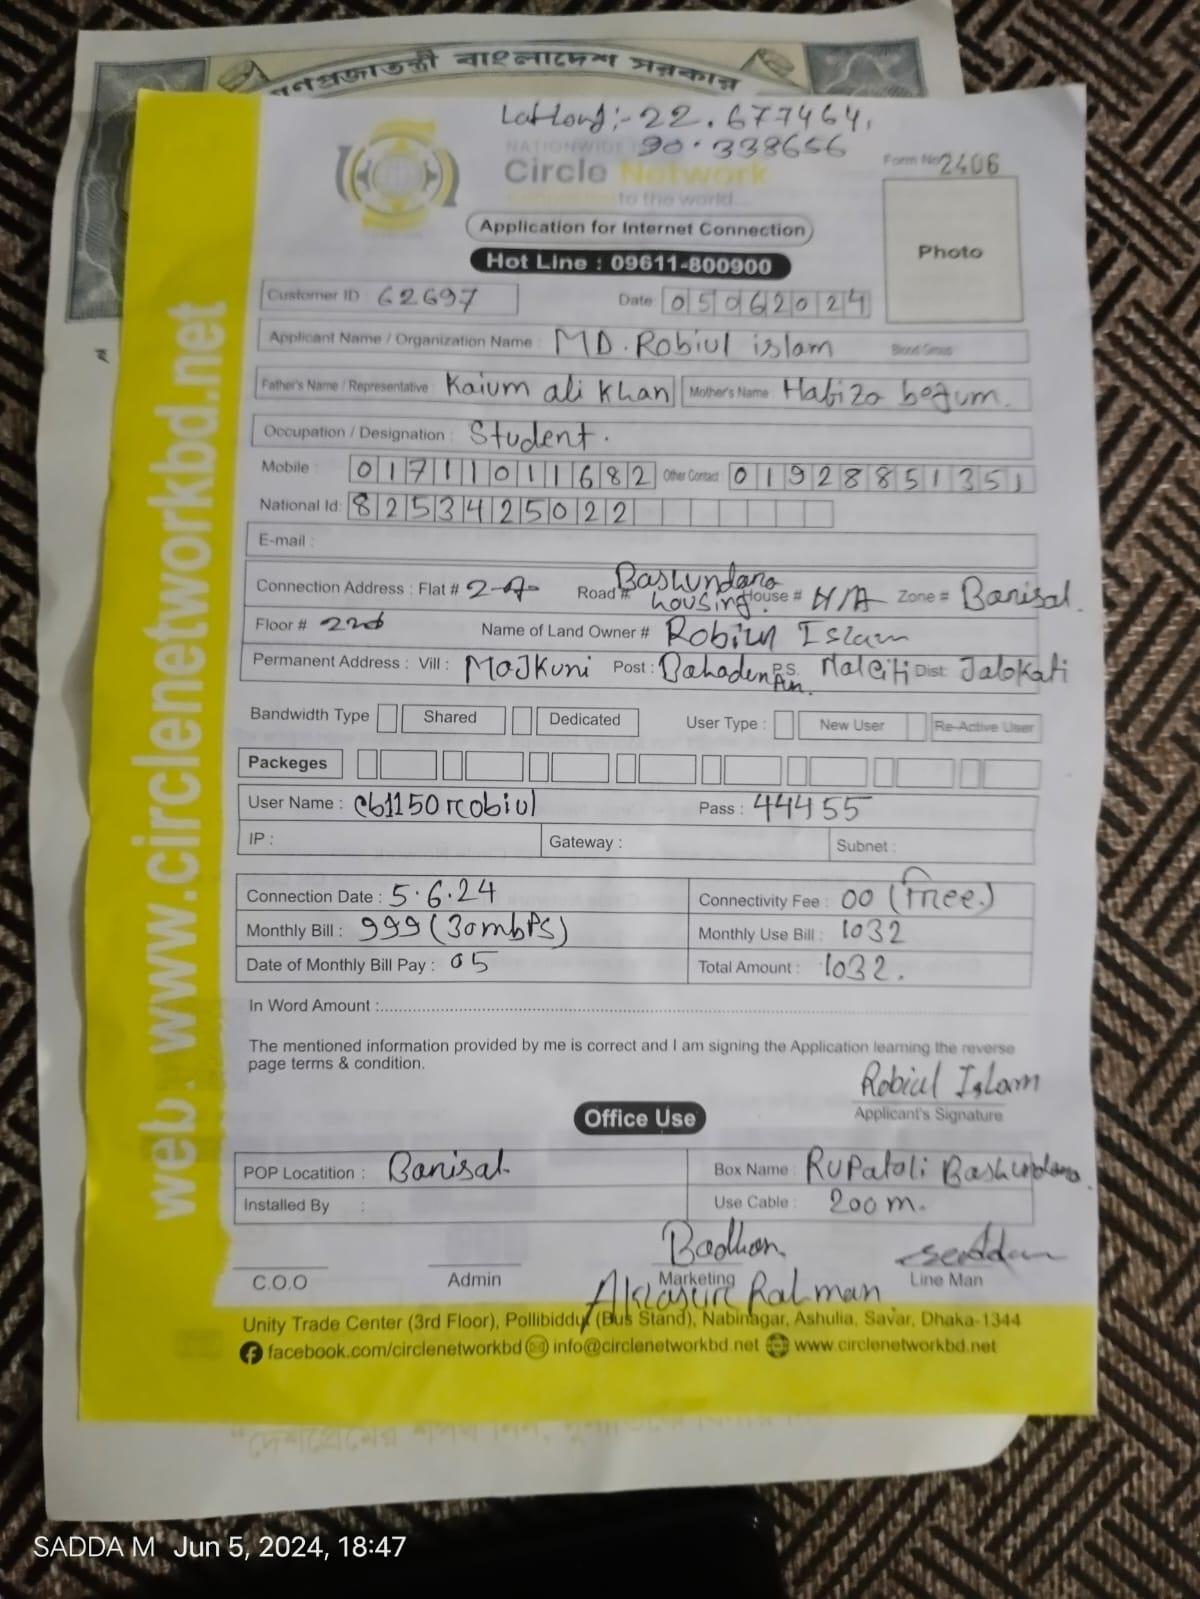 গণপ্রজাতন্ত্রী বাংলাদেশ সরকার
LatLong:- 22.677464,
90.338656
NATIONWIDE
Circle Network
to the world...
Form No 2406
Application for Internet Connection
Photo
Hot Line : 09611-800900
Customer ID 62697 Date: 05062024
Applicant Name / Organization Name : MD. Robiul islam Blood Group
Father's Name / Representative : Kaium ali Khan Mother's Name : Habiza begum.
Occupation / Designation : Student.
Mobile : 01711011682 Other Contact : 01928851351
National Id: 8253425022
E-mail :
Connection Address : Flat # 2-A Road # Bashundara housing. House # N/A Zone # Barisal.
Floor # 2nd Name of Land Owner # Robiul Islam
Permanent Address : Vill : Majkuni Post : P.S. Nalciti Dist: Jalokati
Bandwidth Type Shared Dedicated User Type : New User Re-Active User
Packeges
User Name : cb1150robiul Pass : 44455
IP : Gateway : Subnet :
Connection Date : 5.6.24 Connectivity Fee : 00 (free.)
Monthly Bill : 999 (30mbps) Monthly Use Bill : 1032
Date of Monthly Bill Pay : 05 Total Amount : 1032.
In Word Amount :
The mentioned information provided by me is correct and I am signing the Application learning the reverse
page terms & condition.
Robiul Islam
Applicant's Signature
Office Use
POP Locatition : Barisal Box Name : Rupatoli Bashundara.
Installed By : Use Cable : 200 m.
Badhon
C.O.O Admin Marketing Line Man
Rahman
Unity Trade Center (3rd Floor), Pollibiddut (Bus Stand), Nabinagar, Ashulia, Savar, Dhaka-1344
facebook.com/circlenetworkbd info@circlenetworkbd.net www.circlenetworkbd.net
web: www.circlenetworkbd.net
SADDA M Jun 5, 2024, 18:47